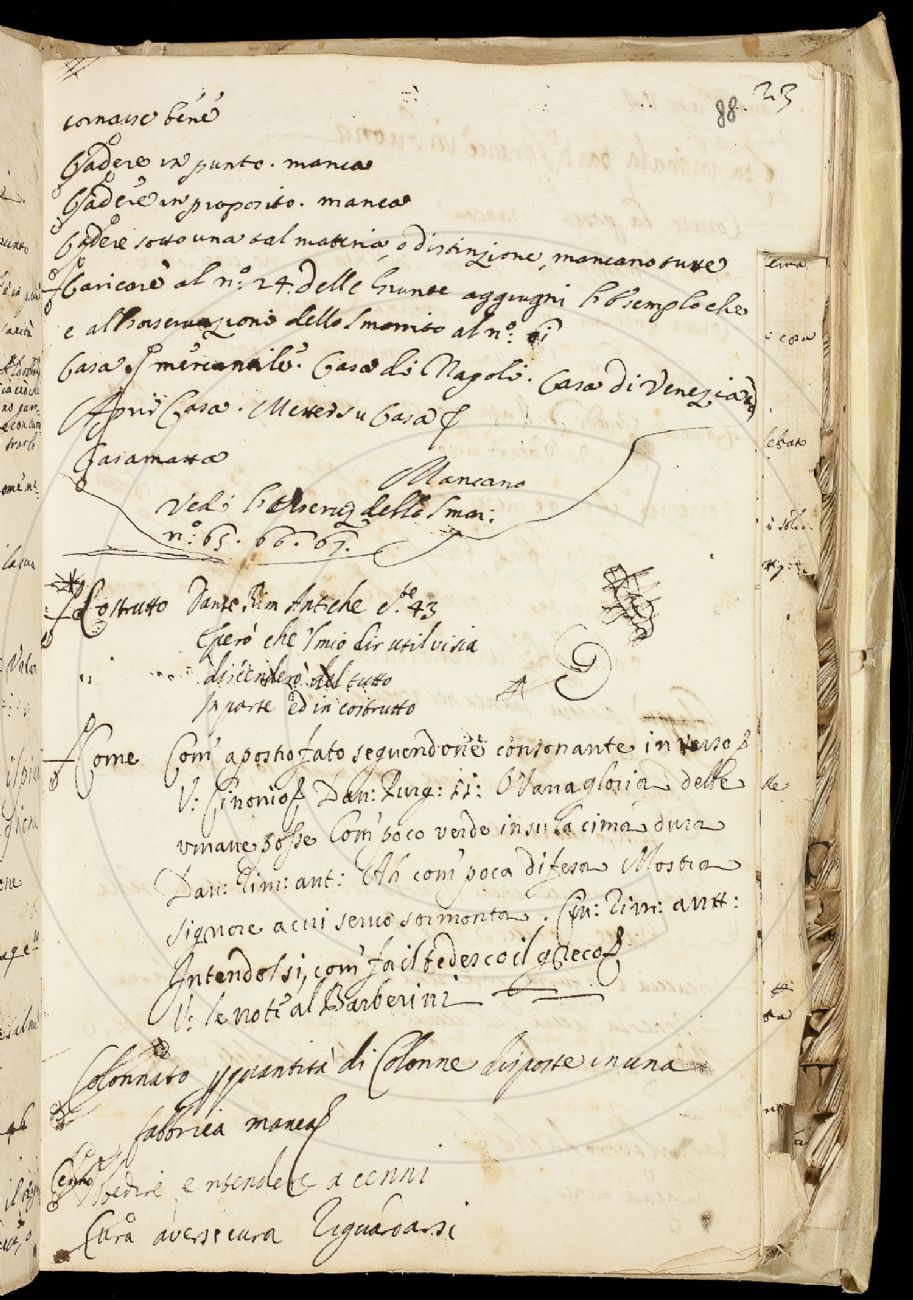 88. 23
tornare bene
Cadere in punto. manca
Cadere in proposito. manca
Cadere sotto una tal materia, o distinzione, mancano tutte
Caricare al nº: 24. delle Giunte aggiugni l'esemplo che
e all'osservazioni dello Smarrito al nº: 61
Casa mercantile. Casa di Napoli. Casa di Venezia
Aprir Casa. Metter su Casa
Casamatta
Mancano
Vedi l'osserv: dello Smar:
nº. 65. 66. 67.
Costrutto Dante Rim Antiche c.te 43
E però che 'l mio dir util vi sia
discenderò del tutto
In parte ed in costrutto
Come Com' apostrofato seguendone consonante in verso
V: Cinonio Dan: Purg: 11: O Vana gloria delle
umane posse Com' poco verde in su la cima dura
Dan: Rim: ant: Ah com' poca difesa Mostra
signore a cui servo sormonta. Cin: Rim: antt:
Intendolsi, com' fa il tedesco il greco
V: le note al Barberini
Colonnato quantità di Colonne disposte in una
fabbrica manca
Cenno Obedire e ntendere a cenni
Cura aversi cura Riguardarsi